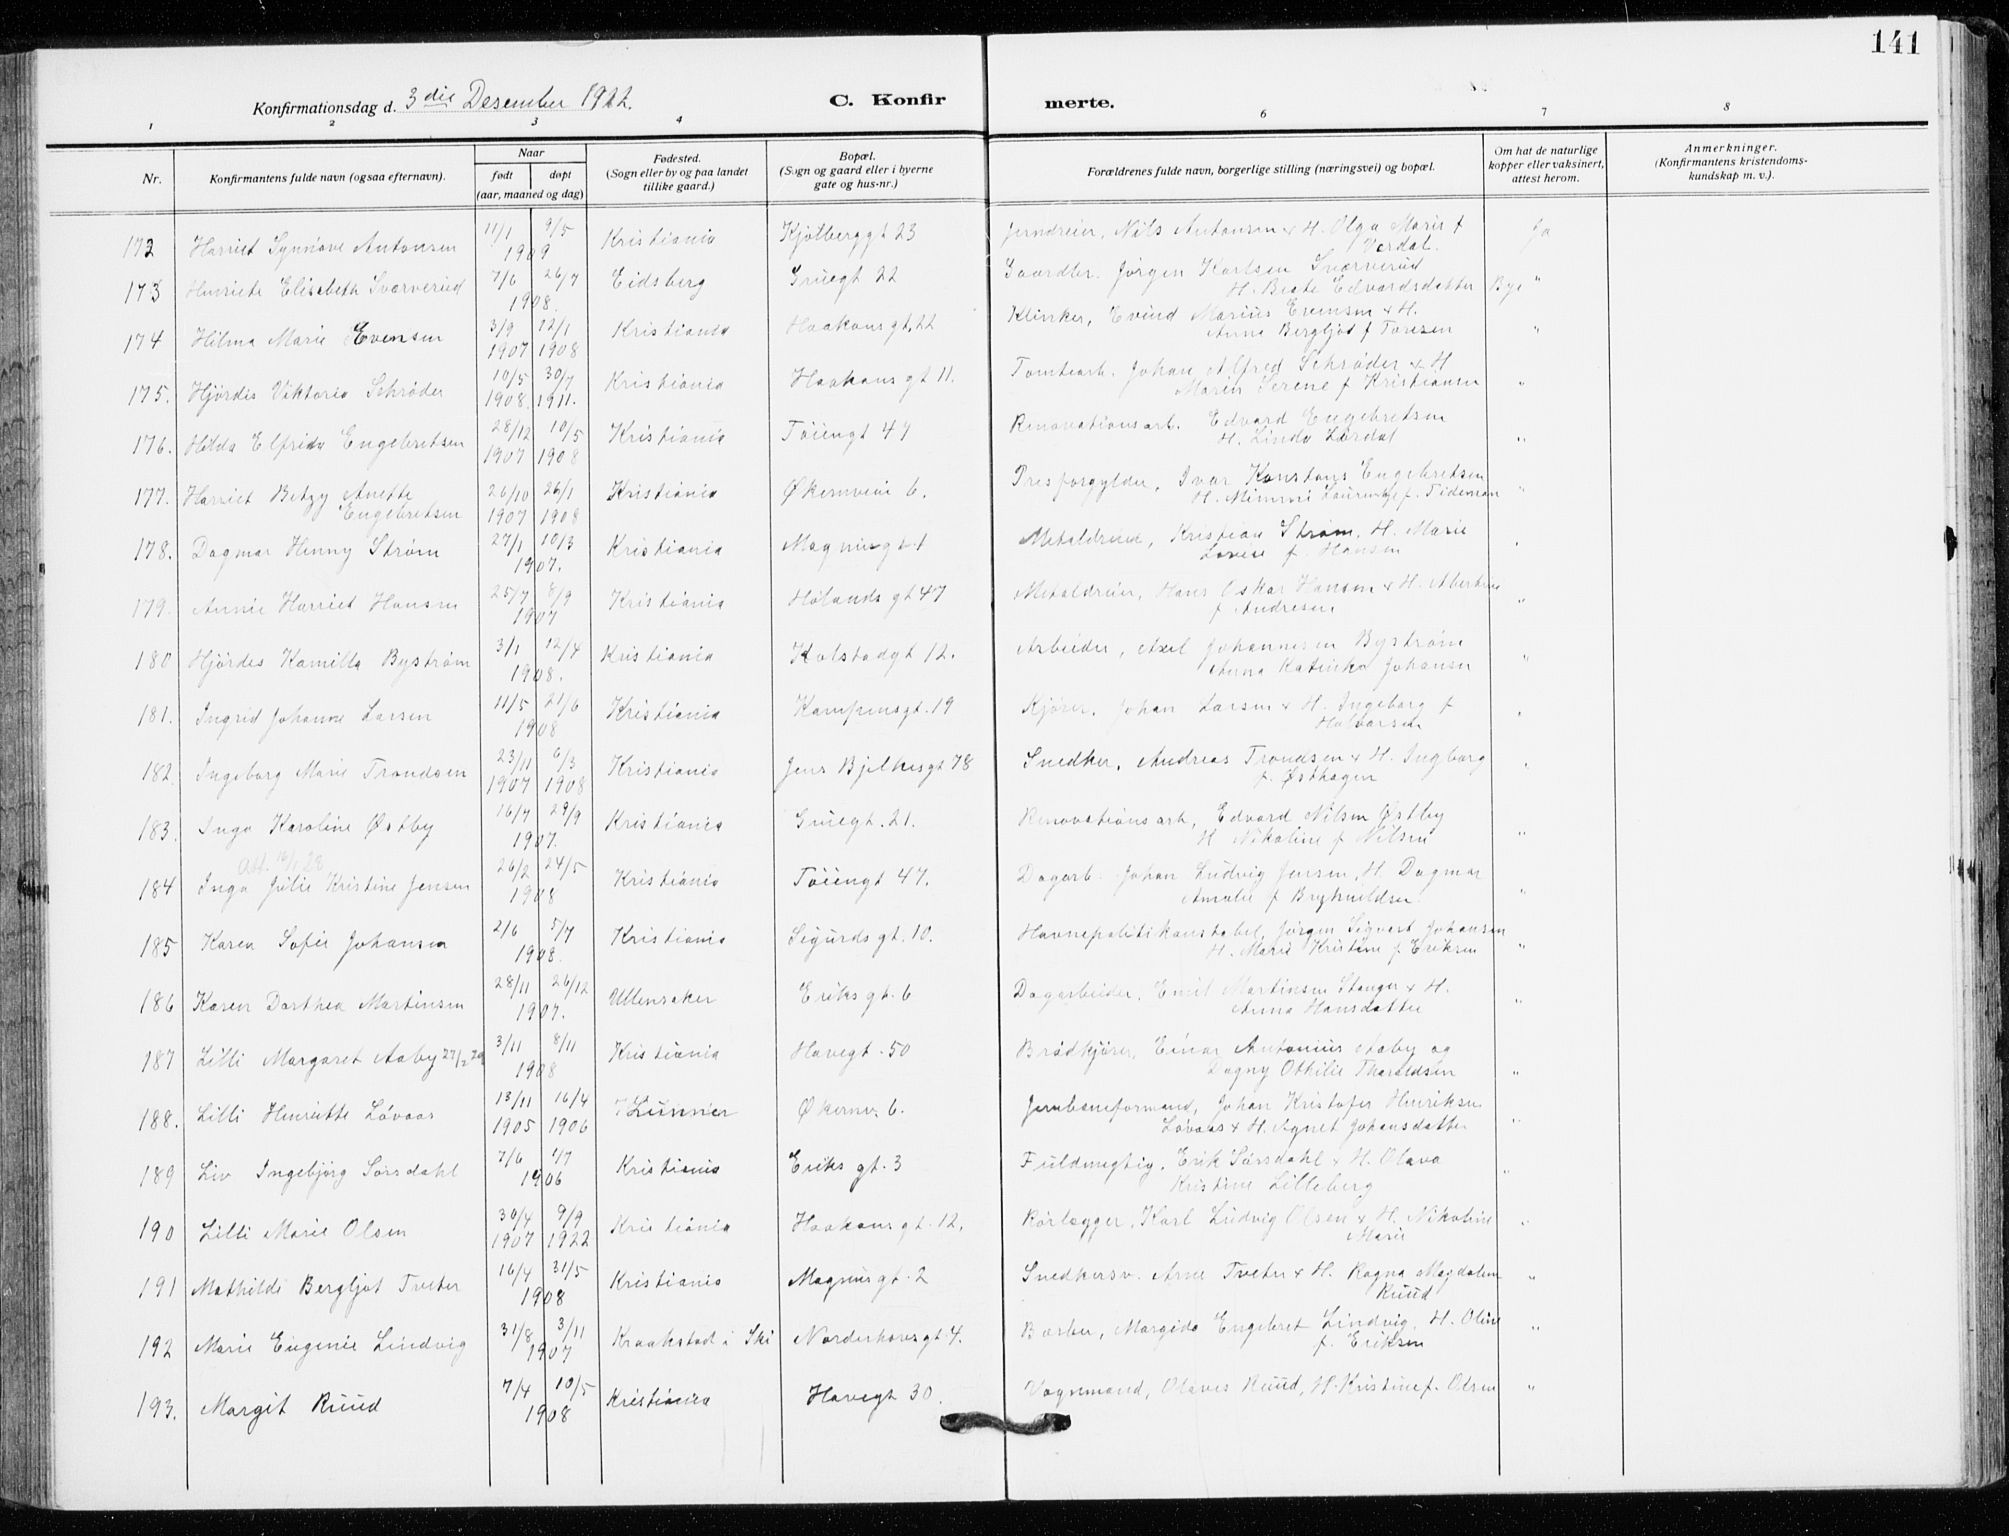 141
Konfirmationsdag d. 3die Desember 1922. C. Konfirmerte.
1 2 3 4 6 7 8
Nr. Konfirmantens fulde navn (ogsaa efternavn). Naar født døpt (aar, maaned og dag) Fødested. (Sogn eller by og paa landet tillike gaard.) Bopæl. (Sogn og gaard eller i byerne gate og hus-nr.) Forældrenes fulde navn, borgerlige stilling (næringsvei) og bopæl. Om hat de naturlige kopper eller vaksinert, attest herom. Anmerkninger. (Konfirmantens kristendomskundskap m. v.).
172 Harriet Synnøve Antonsen 11/1 9/5 1909 Kristiania Kjølberggt 23 Jerndreier, Nils Antonsen & H. Olga Marie f Verdal. Ja
173 Henriete Elisabeth Sværverud 7/6 26/7 1908. Eidsberg Gruegt 22 Gaardbr. Jørgen Karlsen Sværverud H. Beate Edvardsdatter Bye "
174 Hilma Marie Evensen 3/9 1907 12/1 1908 Kristiania Haakonsgt. 22 Klinker, Evind Marius Evensen & H. Anne Bergljot f Toresen "
175. Hjørdis Viktoria Schrøder 10/5 1908. 30/7 1911. Kristiania Haakons gt 11. Tomtearb. Johan Alfred Schrøder & H Maren Serene f Kristiansen "
176. Hilda Elfrida Engebretsen 28/12 1907 10/5 1908 Kristiania Tøiengt 47 Renovationsarb. Edvard Engebretsen H. Linda Lardal "
177. Harriet Betzy Anette Engebretsen 26/10 1907 26/1 1908 Kristiania Økernveien 6. Presforgylder, Ivar Konstans Engebretsen H. Mimmi f. Tideman "
178. Dagmar Henny Strøm 27/1 10/3 1907. Kristiania Magnusgt. 1 Metaldreier, Kristian Strøm, H. Marie Lovise f. Hansen "
179. Annie Harriet Hansen 25/7 8/9 1907 Kristiania Hølands gt 47 Metaldreier, Hans Oskar Hansen & H. Albertine f Andresen "
180 Hjørdes Kamilla Bystrøm 3/1 12/4 1908. Kristiania Kolstadgt 12. Arbeider, Axel Johannesen Bystrøm Anna Katinka Johansen "
181. Ingrid Johanne Larsen 11/5 21/6 1908 Kristiania Kampensgt. 19 Kjører, Johan Larsen & H. Ingeborg f Halvorsen "
182. Ingeborg Marie Trondsen 23/11 1907 6/3 1908 Kristiania Jens Bjelkesgt 78 Snedker, Andreas Trondsen & H. Ingborg f. Østhagen "
183. Inga Karoline Østby 16/7 29/9 1907. Kristiania Gruegt. 21. Renovationsarb, Edvard Nilsen Østby H Nikoline f Nilsen "
184 Inga Julie Kristine Jensen 26/2 24/5 1908 Kristiania Tøiengt 47. Dagarb. Johan Ludvig Jensen, H. Dagmar Amalie f Brynhildsen "
185 Karen Sofie Johansen 2/6 5/7 1908. Kristiania Sigurds gt. 10. Havnepolitikonstabel, Jørgen Sigvart Johansen H. Marie Kristine f. Eriksen "
186 Karen Dorthea Martinsen 28/11 26/12 1907. Ullensaker Eriks gt. 6 Dagarbeider, Emil Martinsen Stanger & H. Anna Hansdatter "
187 Lilli Margaret Aaby 3/11 8/11 1908 Kristiania Havegt. 50 Brødkjører, Einar Antonius Aaby og Dagny Othilie Tharaldsen "
188. Lilli Henriette Løvaas 13/11 1905 16/4 1906 Lunner Økernv. 6. Jernbaneformand, Johan Kristofer Henriksen Løvaas & H. Agnet Johansdatter "
189 Liv Ingebjørg Sørsdahl 7/6 1/7 1906 Kristiania Eriks gt. 3 Fuldmegtig. Erik Sørsdahl & H. Olava Kristine Lilleberg "
190 Lilli Marie Olsen 30/4 1907 9/9 1922 Kristiania Haakons gt. 12. Rørlægger, Karl Ludvig Olsen & H. Nikoline Marie "
191 Mathilde Bergljot Tveter 16/4 31/5 1908 Kristiania Magnusgt. 2 Snedkersv. Arne Tveter & H. Ragna Magdalene Ruud "
192 Marie Eugenie Lindvig 31/8 3/11 1907 Kraakstad i Ski Norderhovsgt. 4. Barber, Margido Engebret Lindvig, H. Oline f. Eriksen "
193. Margit Ruud 7/4 10/5 1908 Kristiania Havegt 30. Vognmand, Olaves Ruud, H. Kristine f. Olsen "